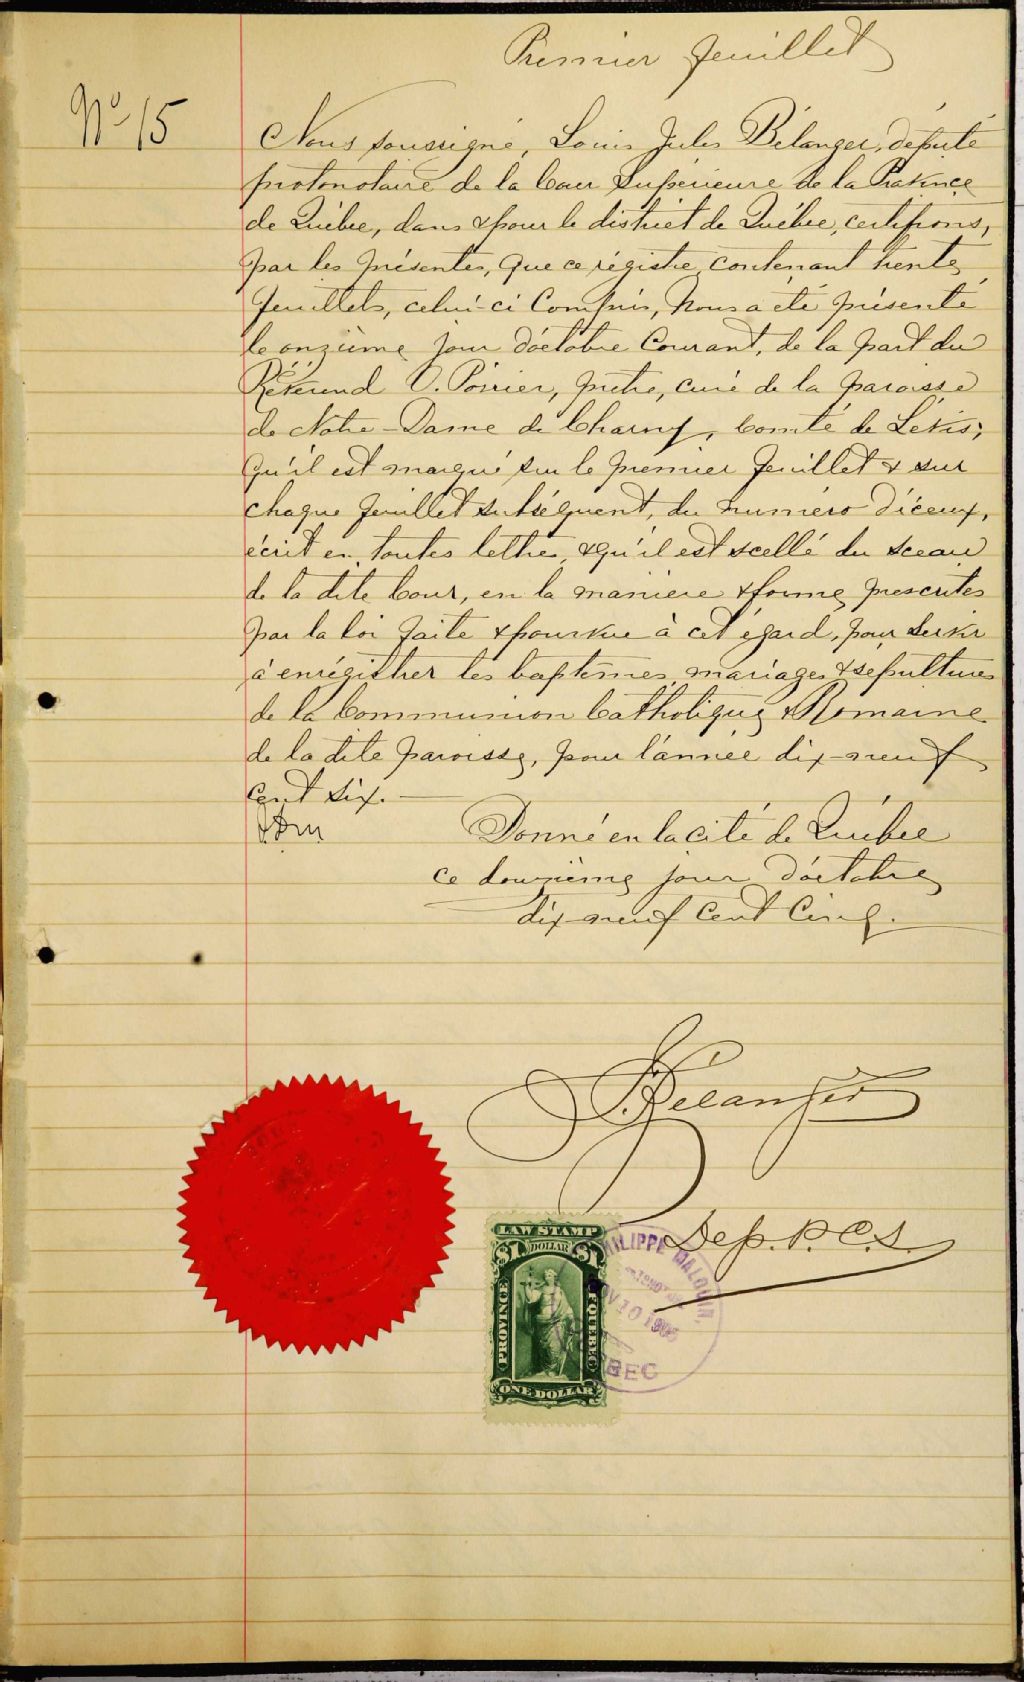 Premier feuillet
No 15
Nous soussigné, Louis Jules Bélanger, député
protonotaire de la Cour Supérieure de la Province
de Québec, dans & pour le district de Québec, certifions,
par les présentes, que ce régistre, contenant trente
feuillets, celui-ci Compris, Nous a été présenté
le onzième jour d'octobre Courant, de la part du
Révérend O. Poirier, prêtre, curé de la paroisse
de Notre-Dame de Charny, Comté de Lévis;
qu'il est marqué sur le premier feuillet & sur
chaque feuillet subséquent, du numéro d'iceux,
écrit en toutes lettres, & qu'il est scellé du sceau
de la dite Cour, en la manière & forme prescrites
par la loi faite & pourvue à cet égard, pour servir
à enrégistrer les baptêmes, mariages & sépultures
de la Communion Catholique & Romaine
de la dite paroisse, pour l'année dix-neuf
cent six.
Donné en la cité de Québec
ce douzième jour d'octobre
dix-neuf cent cinq.
Bélanger
Dép. P.C.S.
LAW STAMP
$1 DOLLAR $1
PROVINCE OF QUEBEC
ONE DOLLAR
PHILIPPE MALOUIN,
NOV 10 1905
QUEBEC